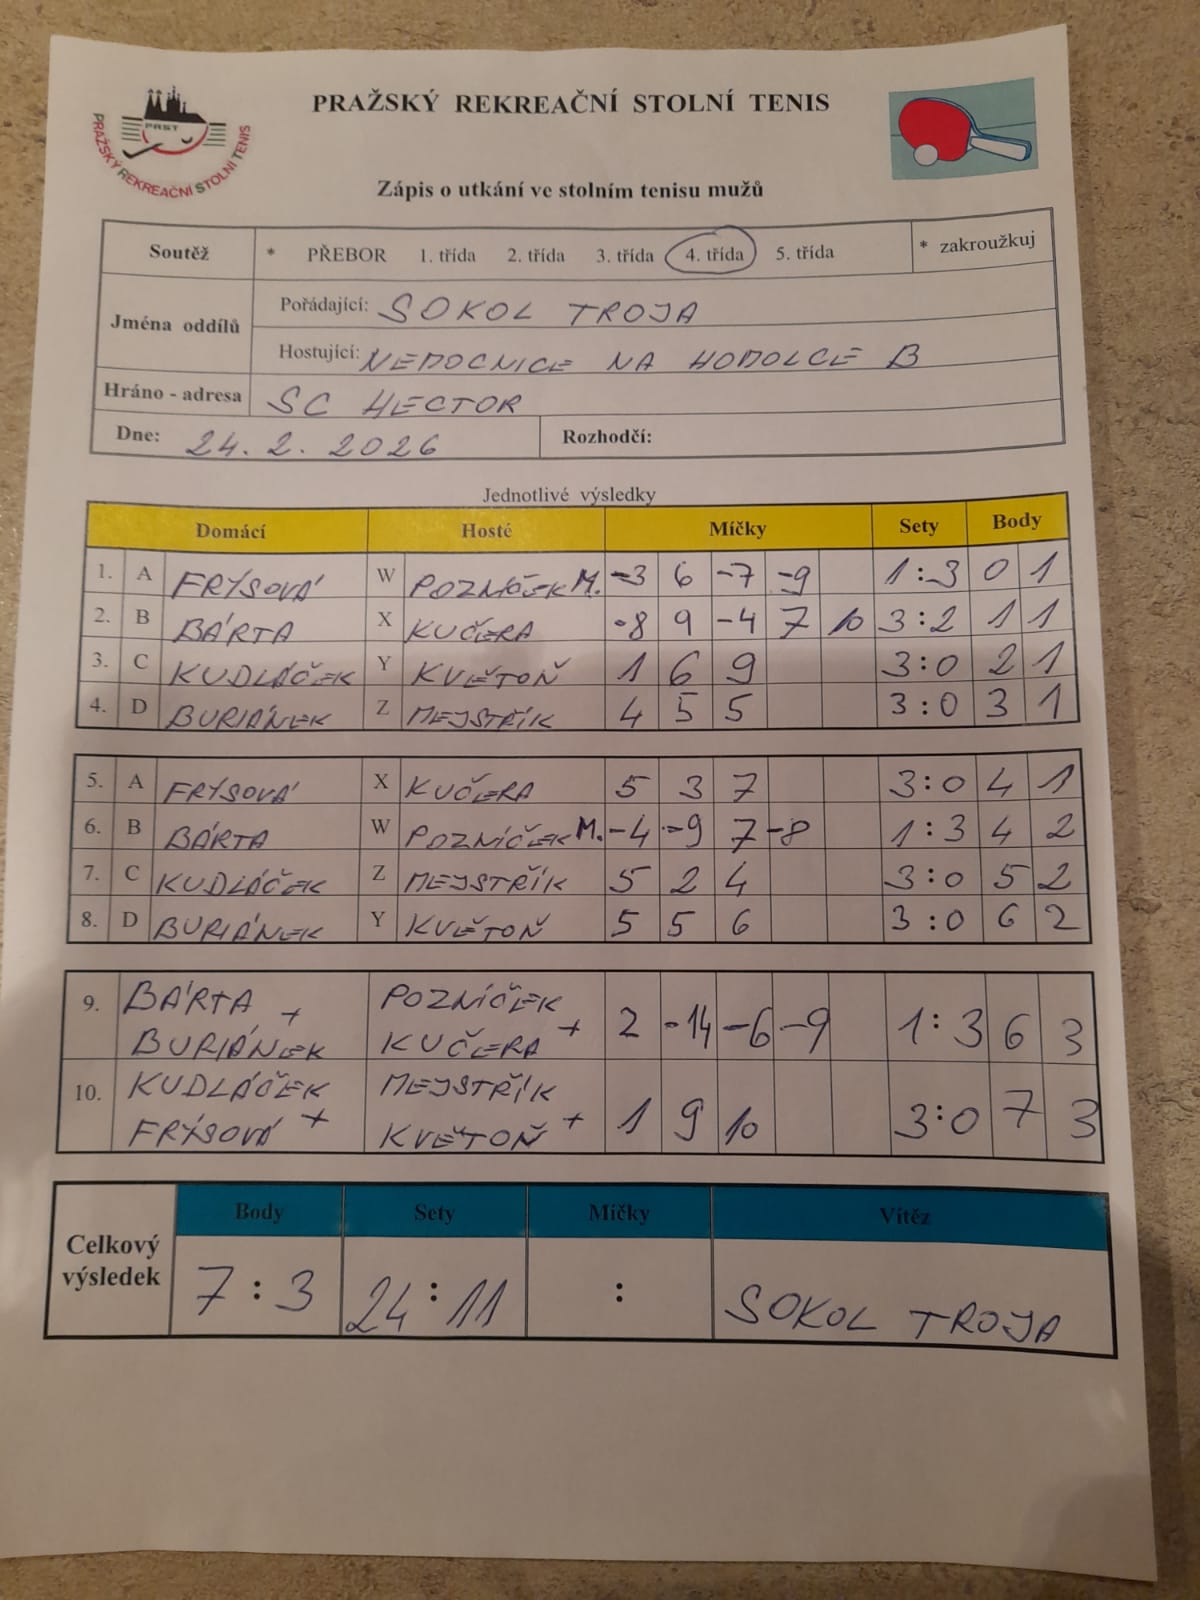 PRAŽSKÝ REKREAČNÍ STOLNÍ TENIS
PRST
PRAŽSKÝ REKREAČNÍ STOLNÍ TENIS
Zápis o utkání ve stolním tenisu mužů
Soutěž * PŘEBOR 1. třída 2. třída 3. třída 4. třída 5. třída * zakroužkuj
Jména oddílů
Pořádající: SOKOL TROJA
Hostující: NEMOCNICE NA HOMOLCE B
Hráno - adresa SC HECTOR
Dne: 24. 2. 2026 Rozhodčí:
Jednotlivé výsledky
Domácí Hosté Míčky Sety Body
1. A FRÝSOVÁ W POZNÍČEK M. -3 6 -7 -9 1:3 0 1
2. B BÁRTA X KUČERA -8 9 -4 7 10 3:2 1 1
3. C KUDLÁČEK Y KVĚTOŇ 1 6 9 3:0 2 1
4. D BURIÁNEK Z MEJSTŘÍK 4 5 5 3:0 3 1
5. A FRÝSOVÁ X KUČERA 5 3 7 3:0 4 1
6. B BÁRTA W POZNÍČEK M. -4 -9 7 -8 1:3 4 2
7. C KUDLÁČEK Z MEJSTŘÍK 5 2 4 3:0 5 2
8. D BURIÁNEK Y KVĚTOŇ 5 5 6 3:0 6 2
9. BÁRTA + POZNÍČEK +
BURIÁNEK KUČERA 2 -14 -6 -9 1:3 6 3
10. KUDLÁČEK + MEJSTŘÍK +
FRÝSOVÁ KVĚTOŇ 1 9 10 3:0 7 3
Celkový výsledek
Body Sety Míčky Vítěz
7:3 24:11 : SOKOL TROJA